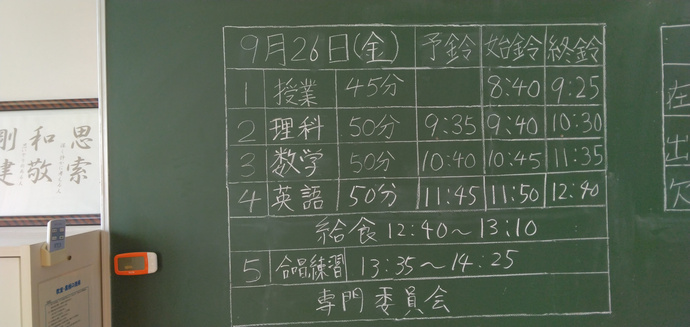 9月26日(金) 予鈴 始鈴 終鈴
1 授業 45分 8:40 9:25
2 理科 50分 9:35 9:40 10:30
3 数学 50分 10:40 10:45 11:35
4 英語 50分 11:45 11:50 12:40
給食 12:40〜13:10
5 合唱練習 13:35〜14:25
専門委員会
思索
和敬
剛建
在
出
欠